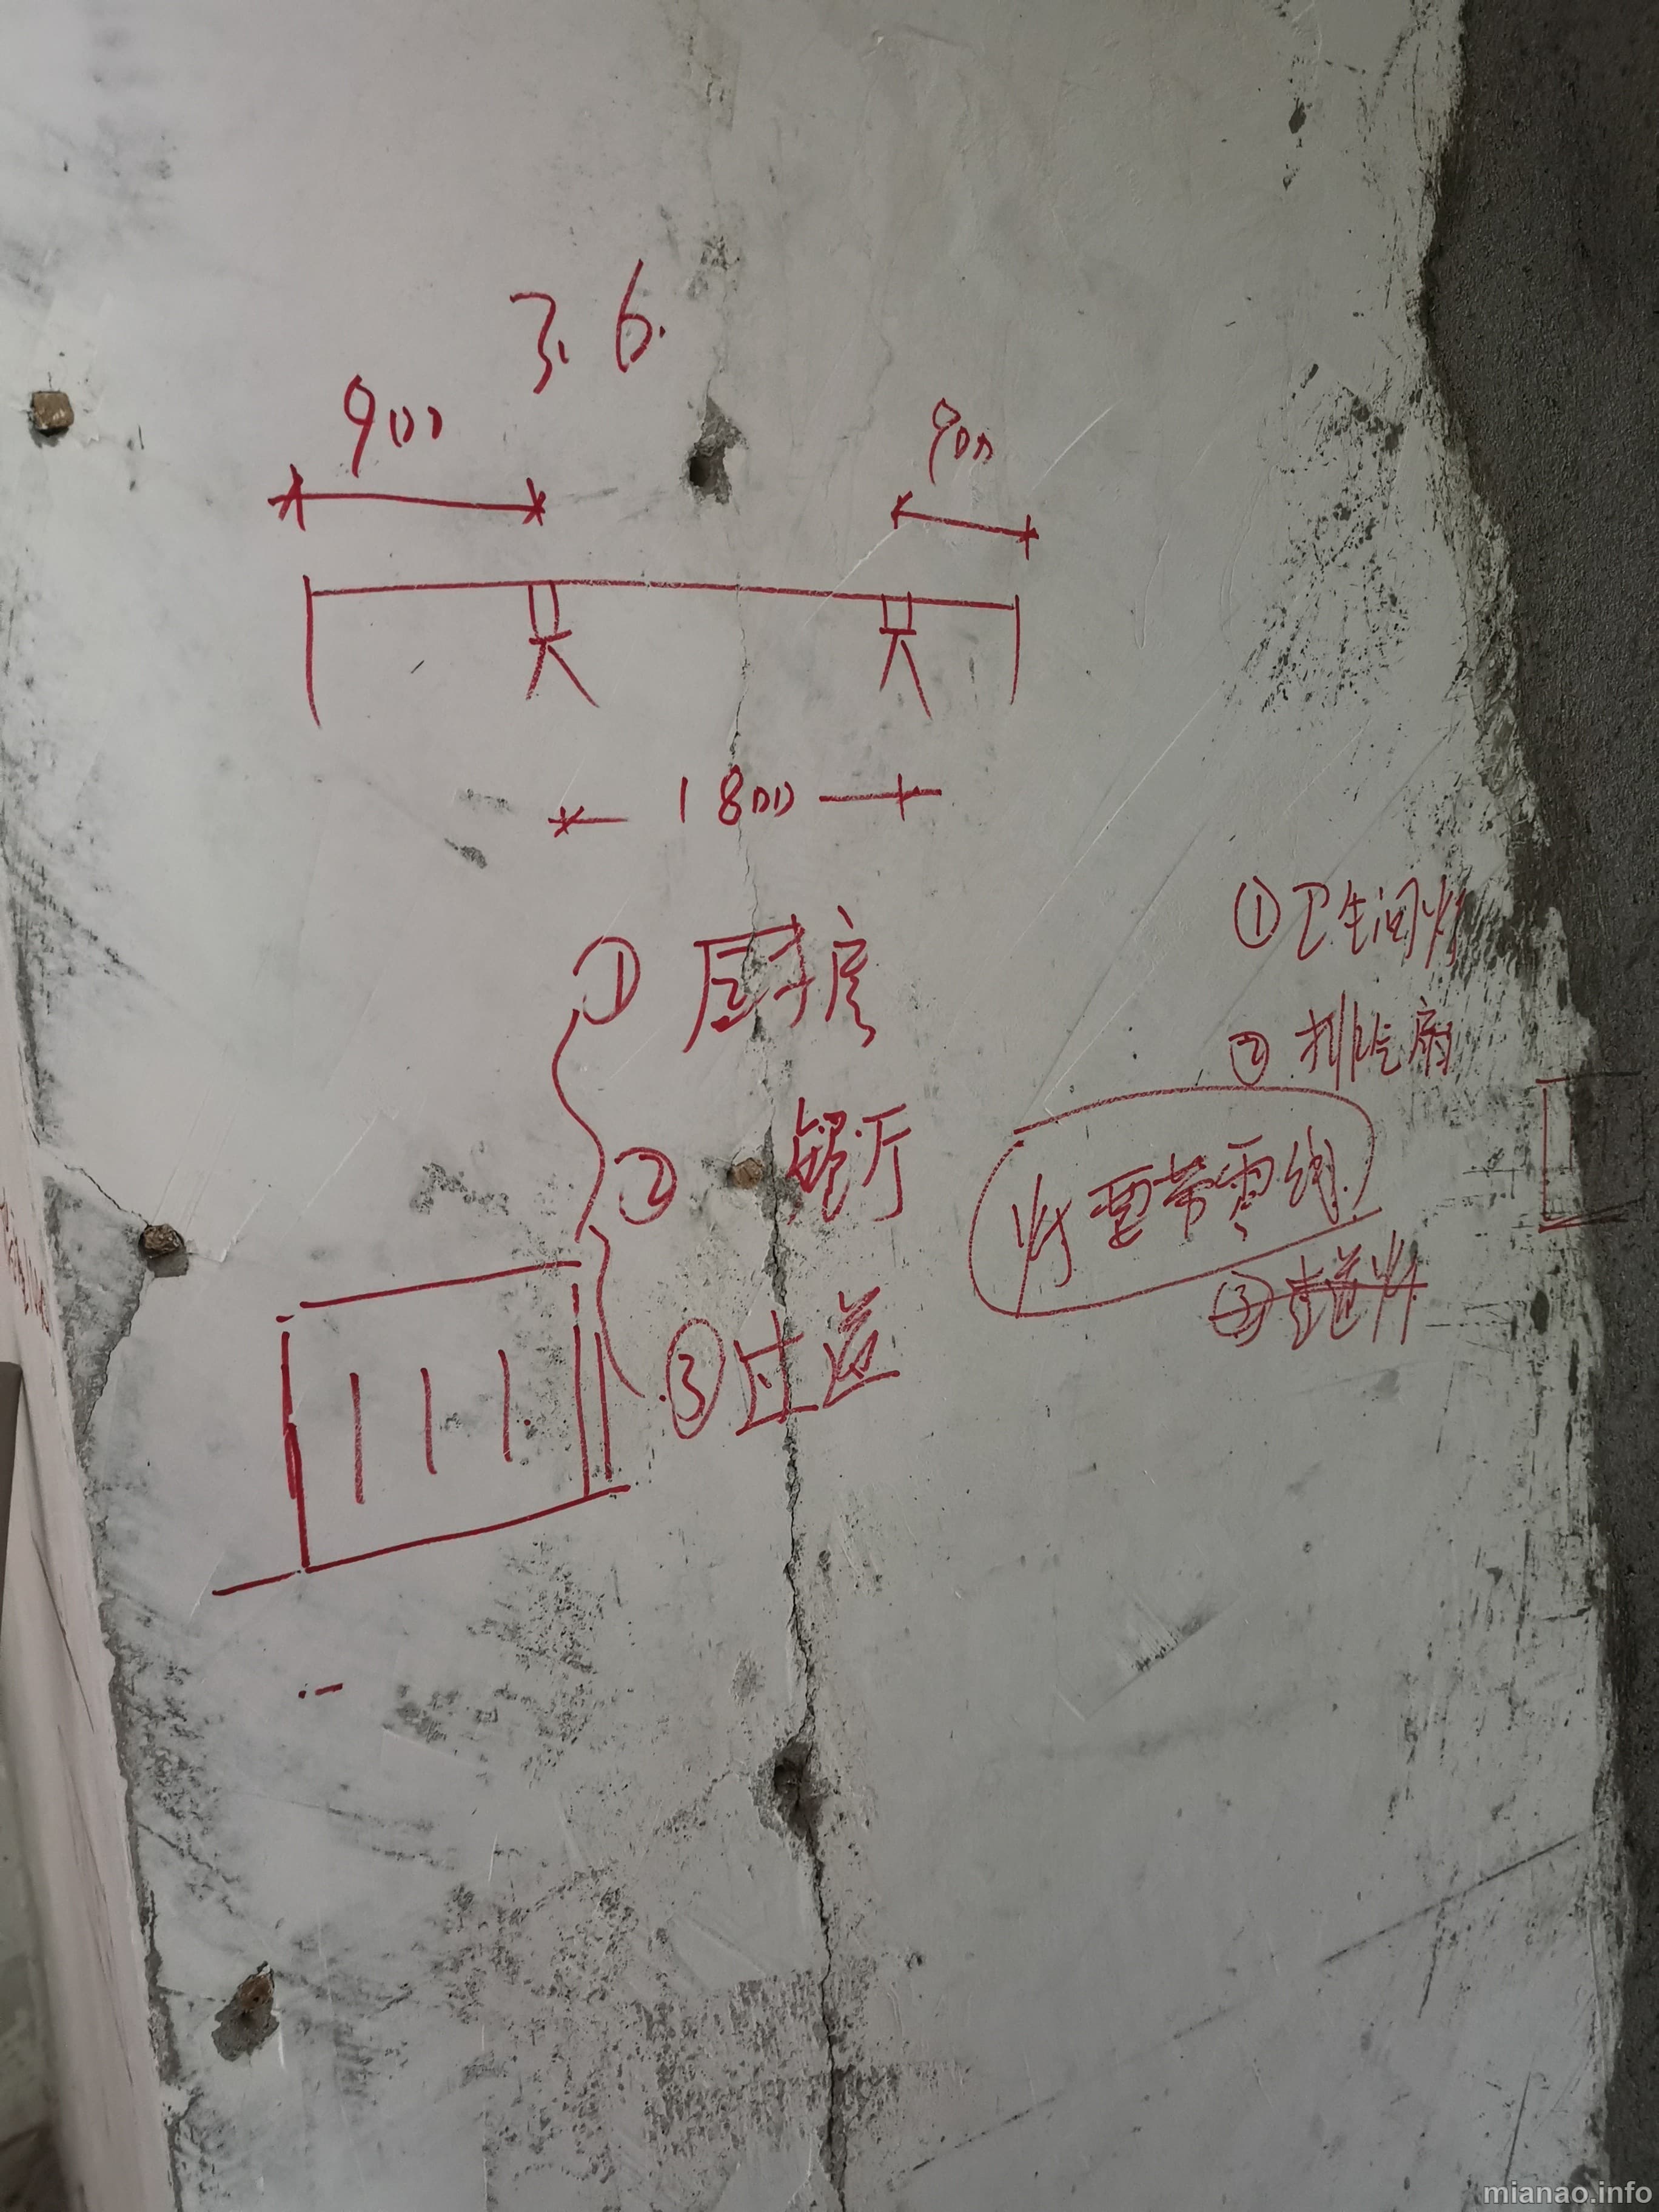 3.6
900
900
1800
① 厨房
② 餐厅
③ 过道
① 卫生间灯
② 排气扇
灯要带零线
③ 走道灯
mianao.info